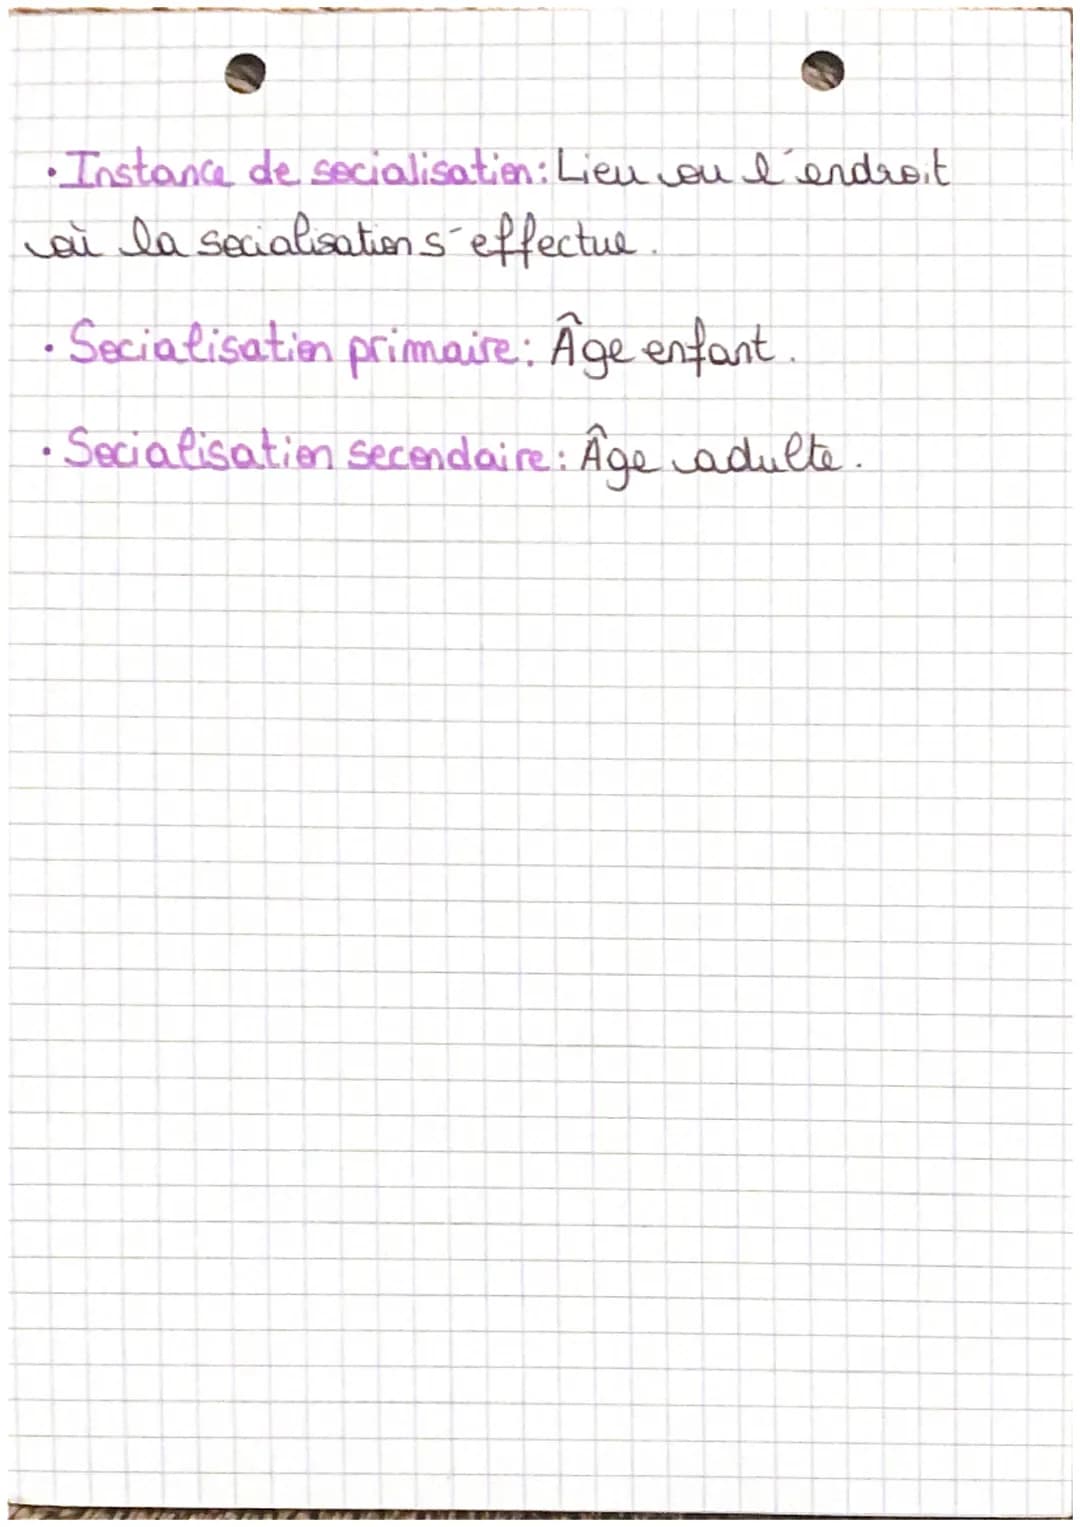 · Instance de socialisation : Lieu ou l'endroit
où la socialisation s'effectue.
· Socialisation primaire : Âge enfant.
· Socialisation secondaire : Âge adulte.